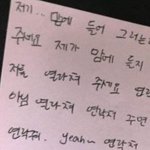 저기.. 맘에 들어 그러는
주세요 제가 맘에 들지
저를 연락처 주세요
아님 연락처 연락처 주면
연락처. yeah~ 연락처